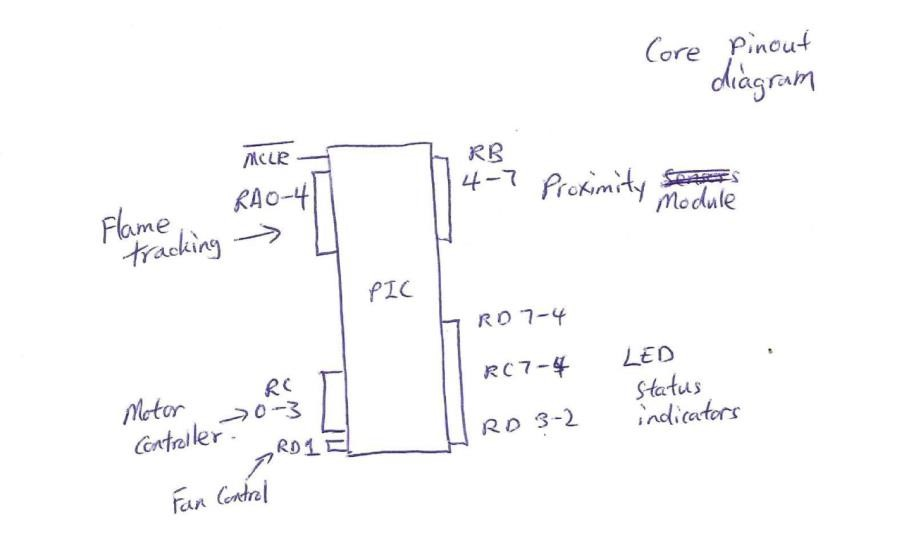 Core Pinout
diagram
MCLR
RA0-4
Flame
tracking
RB
4-7
Proximity Sensors
Module
PIC
RD 7-4
RC7-4
RD 3-2
LED
Status
indicators
RC
0-3
Motor
Controller.
RD1
Fan Control